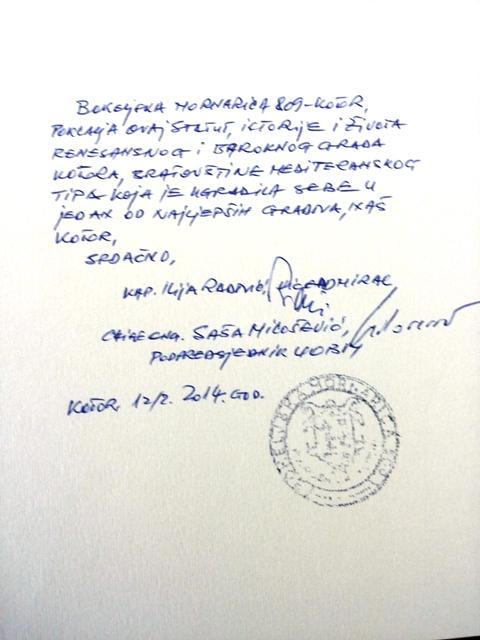 BOKELJSKA MORNARICA 809-KOTOR,
POKLANJA OVAJ STATUT, ISTORIJE I ŽIVOTA
RENESANSNOG I BAROKNOG GRADA
KOTORA, BRATOVŠTINE MEDITERANSKOG
TIPA KOJA JE UGRADILA SEBE U
JEDAN OD NAJLJEPŠIH GRADOVA, NAŠ
KOTOR,
SRDAČNO,
KAP. ILIJA RADOVIĆ, VICEADMIRAL
SAŠA MILOŠEVIĆ,
PODPREDSJEDNIK UOBM
KOTOR, 12/2. 2014. GOD.
MORNARICA